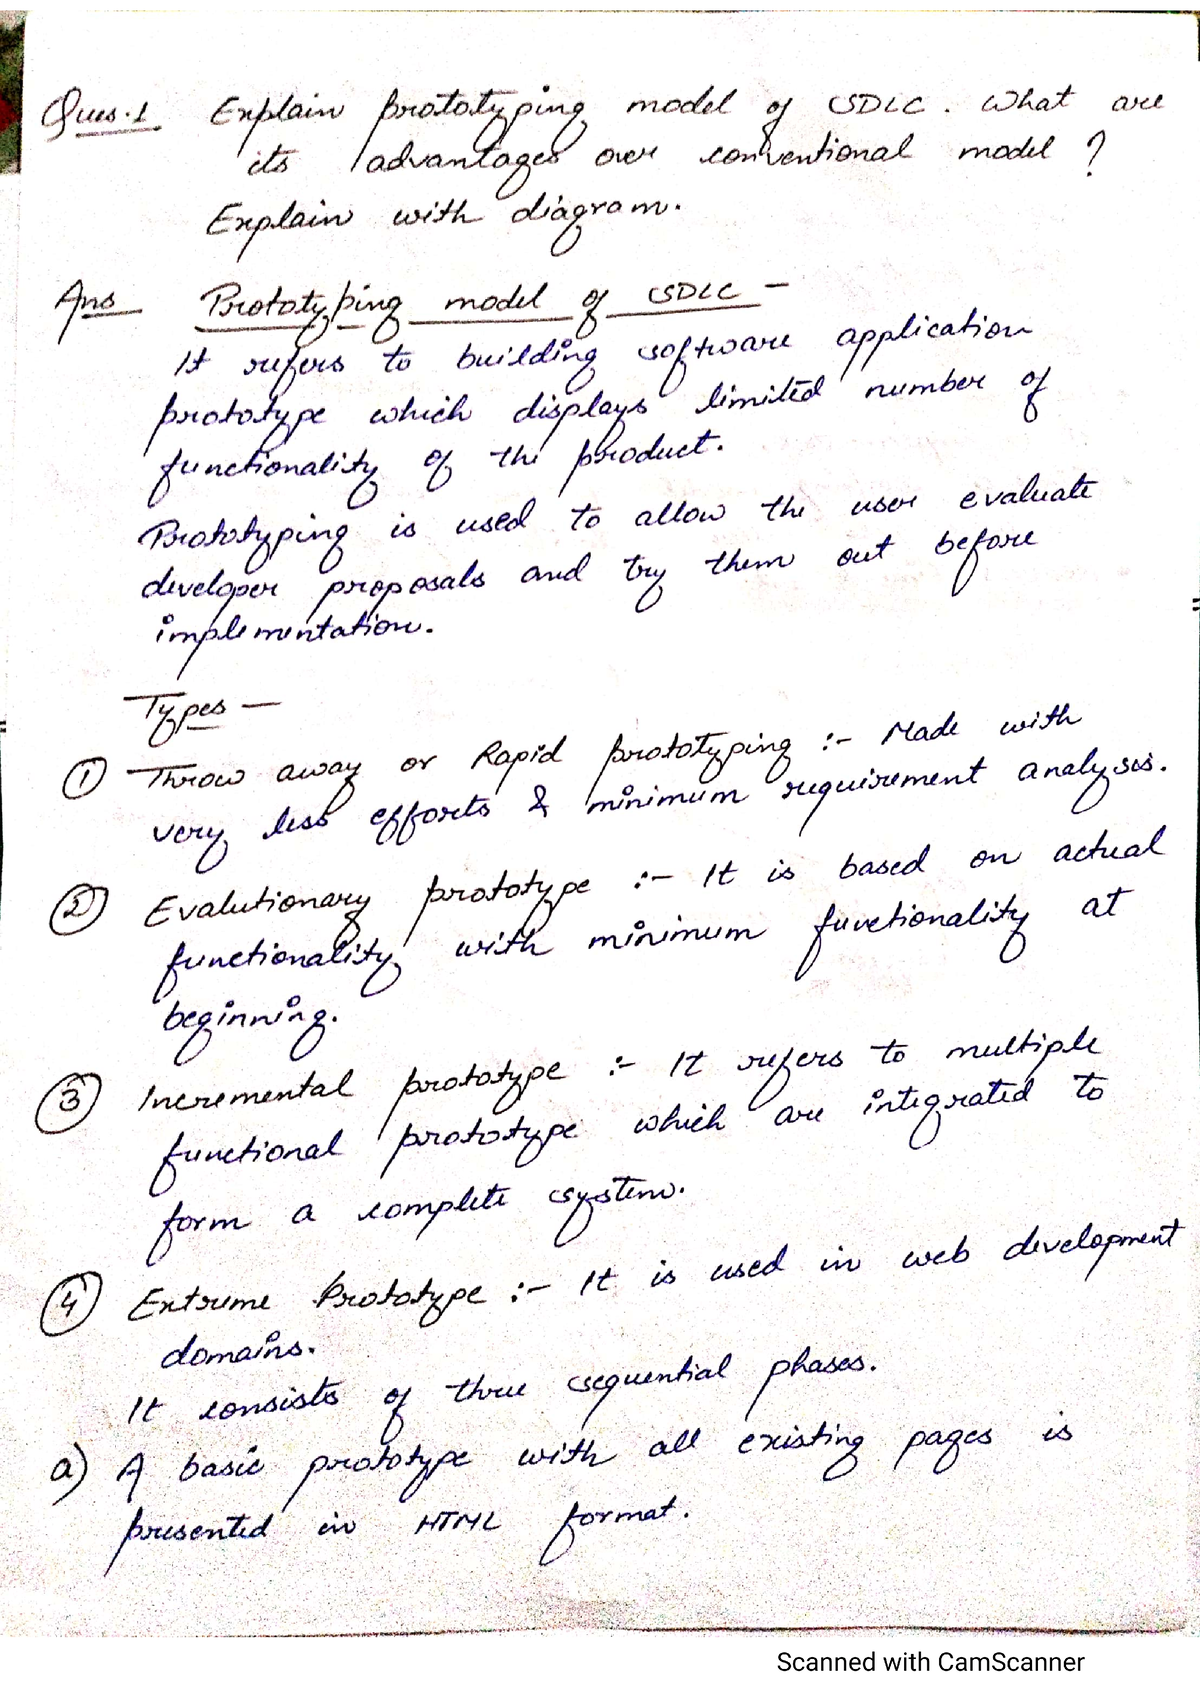 Ques.1 Explain prototyping model of SDLC. What are
its advantages over conventional model ?
Explain with diagram.
Ans Prototyping model of SDLC -
It refers to building software application
prototype which displays limited number of
functionality of the product.
Prototyping is used to allow the user evaluate
developer proposals and try them out before
implementation.
Types -
① Throw away or Rapid prototyping :- Made with
very less efforts & minimum requirement analysis.
② Evalutionary prototype :- It is based on actual
functionality with minimum functionality at
beginning.
③ Incremental prototype :- It refers to multiple
functional prototype which are integrated to
form a complete system.
④ Extreme Prototype :- It is used in web development
domains.
It consists of three sequential phases.
a) A basic prototype with all existing pages is
presented in HTML format.
Scanned with CamScanner